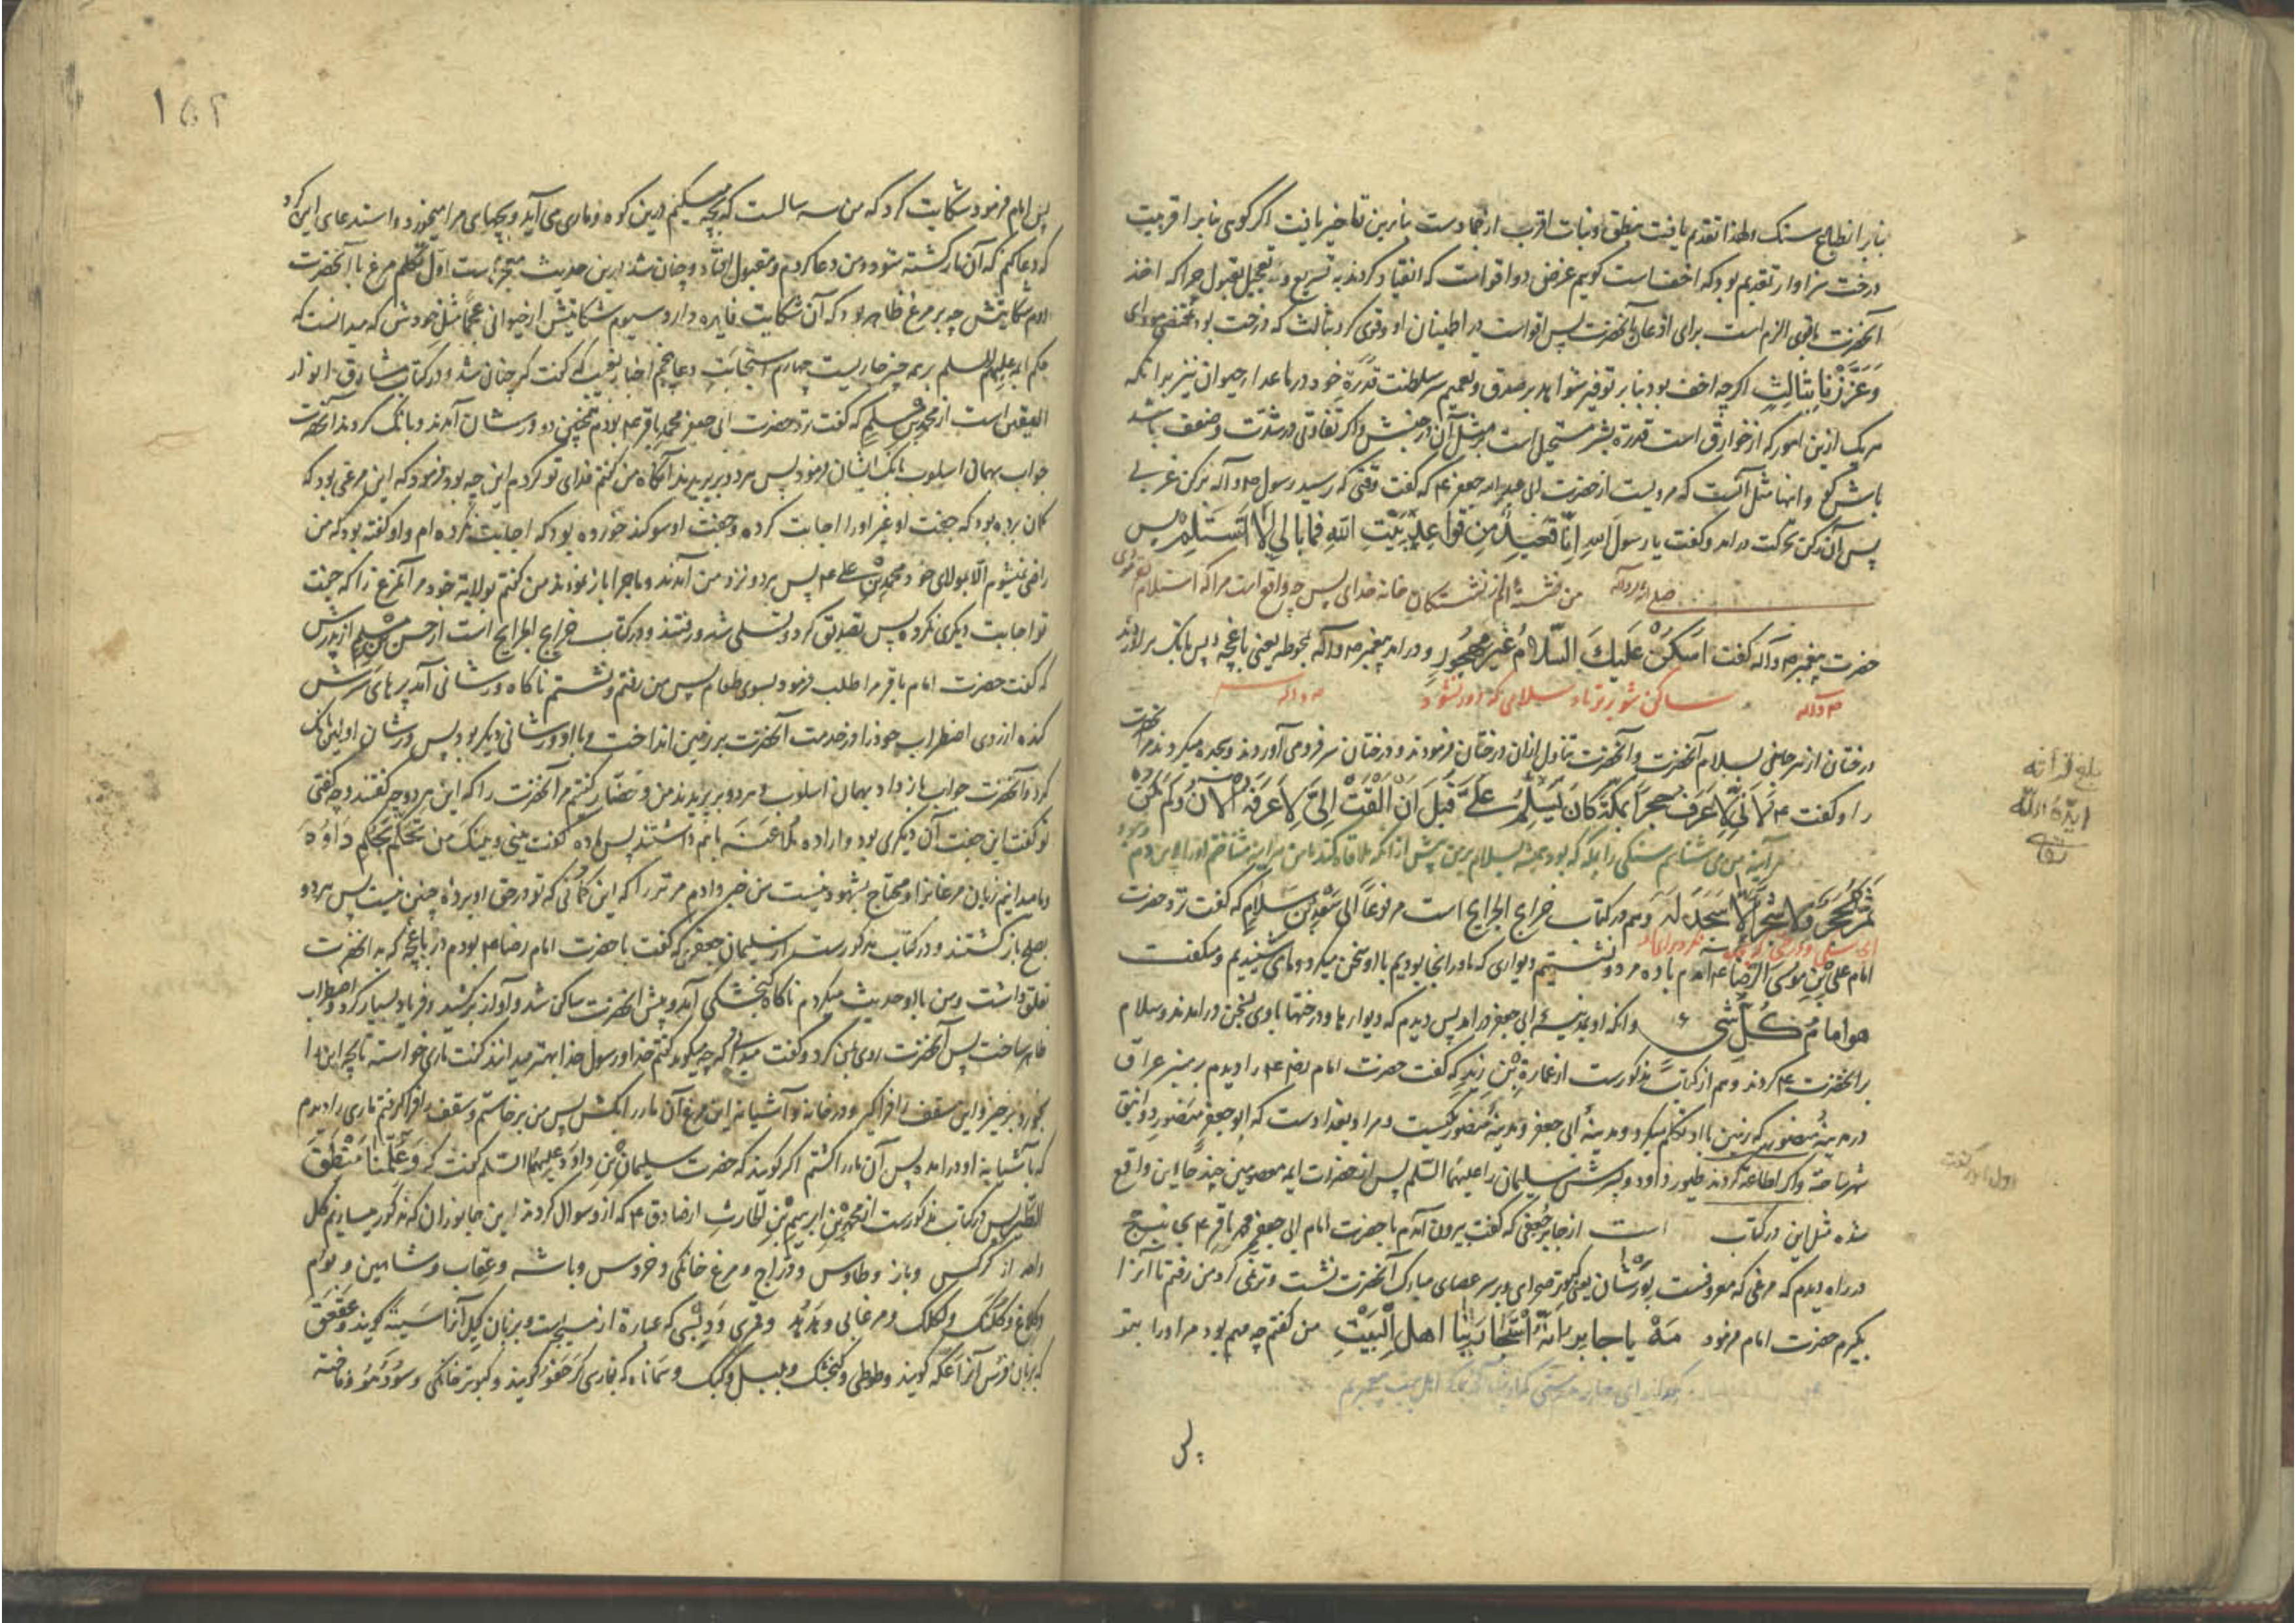 بنابر انطباع سنک و لهذا تقدم یافت بنطق و نبات اقرب از جمادست بنابرین تاخیر یافت اکر کویی بنابر اقربیت
درخت سزاوار تقدیم بود که اخف است کویم غرض دو اقواست که انقیاد کردند به تسریع و تعجیل بقبول چرا که اخذ
آنحضرت باقوی الزم است برای اذعان آنحضرت پس اقواست در اطمینان او و قوی کرد بثالث که درخت بود بمقتضی مؤدای
وَعَزَّزْنا بِثالِثٍ اکرچه اخف بود بنابر توفیر شواهد بر صدق و تعمیم سر سلطنت قدرة خود در ماعدا از حیوان نیز بدانکه
هر یک ازین امور که از خوارق است قدرة بشر مستحیل است بر مثل آن در جنبش و اکر تفاوتی در شدّت و ضعف باشد
باش کو و اینها مثل آنست که مرویست از حضرت ابی عبد الله جعفر ع که کفت وقتی که رسید رسول ص و آله برکن غربی
پس آن رکن بحرکت در آمد و کفت یا رسول الله اِنّا قَعیدٌ مِن قَواعِدِ بَیْتِ اللهِ فَما بالی لا اُسْتَلَمُ پس
صلی الله و آله من نشسته ام از نشستکان خانه خدای پس چه واقع است مرا که استلام
حضرت پیغمبر ص و آله کفت اُسْکُنْ عَلَیْکَ السَّلامُ غَیْرَ مَهْجُورٍ و در آمد پیغمبر ص و آله بحوطه یعنی باغچه پس بانک بر آوردند
ص و آله ساکن شو بر تو باد سلامی که دور نشود ص و آله
درختان از هر جانبی بسلام آنحضرت و آنحضرت تناول ازان درختان فرمودند و درختان سر فرو می آوردند و سجده میکردند مر آنحضرت
را و کفت ع لاَنّی لاَعْرَفُ حَجَرًا بِمَکَّةَ کانَ یُسَلِّمُ عَلَیَّ قَبْلَ اَنْ اُلْقَتْ اِلَیَّ لاَعْرَفُهُ الآنَ وَلَمْ
هر آینه من می شناسم سنکی را بمکه که بود همیشه بسلام برمن پیش از آنکه
یَمُرَّ بِحَجَرٍ وَلا شَجَرٍ اِلّا سَجَدَ لَهُ و هم در کتاب خرایج الجرایح است مرفوعا الی سَعْدِ بْنِ سَلامِ که کفت نزد حضرت
امام علی بْنِ موسی الرّضا ع آمدم با ده مرد و نشستیم دیواری که ما در آنجا بودیم با او سخن میکرد و ما می شنیدیم و میکفت
هو امامُ کُلِّ شیءٍ و آنکه او بمدینه ابی جعفر در آمد پس دیدم که دیوارها و درختها با وی بسخن در آمدند و سلام
بر آنحضرت ع کردند و هم از کتاب مذکورست از عمارة بْنِ زید که کفت حضرت امام رضا ع را دیدم بر منبر عراق
در مدینهٔ منصور که زمین با او تکلم میکرد و مدینهٔ ابی جعفر و مدینهٔ منصور یکیست و مراد بغدادست که ابو جعفر منصور دوانقی
شهر ساخته و اکر اطاعة کردند طیور داود و پسرش سلیمان را علیهما السّلم پس از حضرات ایمه معصومین چند جا این واقع
شده مثل این در کتاب است از جابر جُعفی که کفت بیرون آمدم با حضرت امام ابی جعفر محمد باقر ع بجانب حج
در راه دیدم که مرغی که معروفست بوَرْشان یعنی کبوتر صحرای بر سر عصای مبارک آنحضرت نشست و ترنمی کرد من رفتم تا آنرا
بکیرم حضرت امام فرمود مَهْ یا جابِرُ اِنَّهُ اسْتَجارَ بِنا اهلَ الْبَیْتِ من کفتم چه مهم بود مر او را بتو
پس
بلغ قرائه
ایده الله
تعالی
۱۵۲
پس امام فرمود شکایت کرد که من سه سالست که بچه میکنم درین کوه و ماری می آید و بچهای مرا میخورد و استدعای این کرد
که دعا کنم که آن مار کشته شود و من دعا کردم و مقبول افتاد و چنان شد درین حدیث پنج معجزه است اول تکلم مرغ با آنحضرت
دوم شکایتش چه بر مرغ ظاهر بود که آن شکایت فایده دارد سیوم شکایتش از حیوانی عجما مثل خودش که میدانست که
حکم ایمه علیهم السلم بر همه چیز جاریست چهارم استجابت دعا پنجم اخبار بغیب که کفت که چنان شد و در کتاب مشارق انوار
الیقین است از محمد بن مسلم که کفت نزد حضرت ابی جعفر محمد باقر ع بودم همچنین دو ورشان آمدند و بانک کردند آنحضرت
جواب بهمان اسلوب بانک ایشان فرمود پس هر دو بپریدند آنکاه من کفتم فدای تو کردم این چه بود فرمود که این مرغی بود که
کمان برده بود که جفت او غیر او را اجابت کرده و جفت او سوکند خورده بود که اجابت نکرده ام و او کفته بود که من
راضی نمیشوم الّا بمولای خود محمد بْنِ علی ع پس هر دو نزد من آمدند و ماجرا باز نمودند من کفتم بولایة خود مر آنمرغ را که جفت
تو اجابت دیکری نکرده پس تصدیق کرد و تسلی شد و رفتند و در کتاب خرایج الجرایح است از حسن بن مسلم از پدرش
که کفت حضرت امام باقر مرا طلب فرمود بسوی طعام پس من رفتم و نشستم ناکاه ورشانی آمد پرهای سرش
کنده از روی اضطراب خود را در خدمت آنحضرت بر زمین انداخت و با او ورشانی دیکر بود پس ورشان اولین بانک
کرد و آنحضرت جواب باز داد بهمان اسلوب و هر دو بپریدند من و حضّار کفتیم مر آنحضرت را که این هر دو چه کفتند و چه کفتی
تو کفت این جفت آن دیکری بود و اراده مُلاعَنَه باهم داشتند پس ماده کفت بینی و بینک مَنْ تَحَکَّمَ بِحُکْمِ داوُدَ
و ما میدانیم زبان مرغانرا و محتاج بشهود نیست من خبر دادم مر نر را که این کمانی که تو در حق او برده چنین نیست پس هر دو
بصلح باز کشتند و در کتاب مذکورست از سلیمان جعفری که کفت با حضرت امام رضا ع بودم در باغچه که به آنحضرت
تعلق داشت و من با او حدیث میکردم ناکاه کنجشکی آمد و پیش آنحضرت ساکن شد و آواز برکشید و فریاد بسیار کرد و اضطراب
ظاهر ساخت پس آنحضرت روی بمن کرد و کفت میدانی که چه میکوید کفتم خدا و رسول خدا بهتر میدانند کفت ماری خواسته تا بچه این را
بخورد برخیز و این سقف را فرا کیر و در خانه و آشیانه این مرغ آن مار را بکش پس من برخاستم و سقف فرا کرفتم ماری را دیدم
که بآشیانهٔ او در آمده پس آن مار را کشتم اکر کویند که حضرت سلیمان بْنِ داود علیهما السّلم کفت که وَعُلِّمْنا مَنْطِقَ
الطَّیْرِ پس در کتاب مذکورست از محمد بْنِ ابرهیم بْنِ الحارث از صادق ع که از و سوال کردند این جانوران که مذکور میسازیم کل
واحد از کرکس و باز و طاوس و درّاج و مرغ خانکی و خروس و باشه و عقاب و شاهین و بوم
و کلاغ و کلنک و لکلک و مرغابی و هدهد و قمری و دِبْسی که عبارة از موسیجه است و بزبان کیل آنرا سَیته کویند و عَقعَق
که بزبان فرس آنرا عَکّه کویند و طوطی و کنجشک و بلبل و کبک و سَماناه که بفارسی کَرَجفو کویند و کبوتر خانکی و سودَنه و فاخته